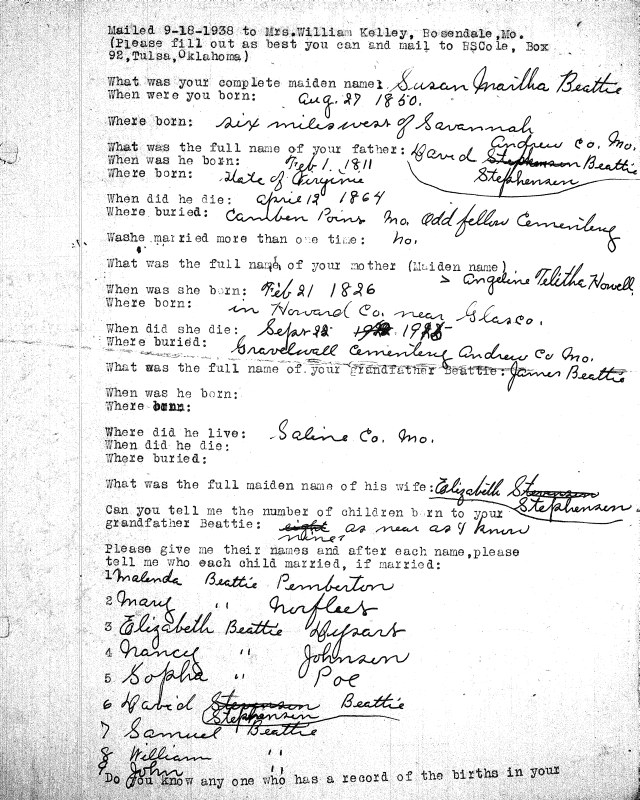 Mailed 9-18-1938 to Mrs.William Kelley, Rosendale,Mo.
(Please fill out as best you can and mail to RSCole, Box
92,Tulsa,Oklahoma)
What was your complete maiden name: Susan Martha Beattie
When were you born: Aug. 27 1850.
Where born: six miles west of Savannah
Andrew Co. Mo.
What was the full name of your father: David Stephenson Beattie
Stephenson
When was he born: Feb 1. 1811
Where born: State of Virginia
When did he die: april 12 1864
Where buried: Camben Poins Mo. Odd fellow Cementery
Washe married more than one time: no.
What was the full name of your mother (Maiden name)
> Angeline Telitha Howell
When was she born: Feb 21 1826
Where born: in Howard Co. near Glasco.
When did she die: Sept 22 1925
Where buried: Gravelwall Cementery Andrew Co Mo.
What was the full name of your grandfather Beattie: James Beattie
When was he born:
Where born:
Where did he live: Saline Co. Mo.
When did he die:
Where buried:
What was the full maiden name of his wife: Elizabeth Stevenson
Stephenson
Can you tell me the number of children born to your
grandfather Beattie: eight as near as I know
nine
Please give me their names and after each name,please
tell me who each child married, if married:
1 Malenda Beattie Pemberton
2 Mary " Norflees
3 Elizabeth Beattie Dysart
4 Nancy " Johnson
5 Sopha " Poe
6 David Stevenson Beattie
Stephenson
7 Samuel Beattie
8 William "
9 John "
Do you know any one who has a record of the births in your